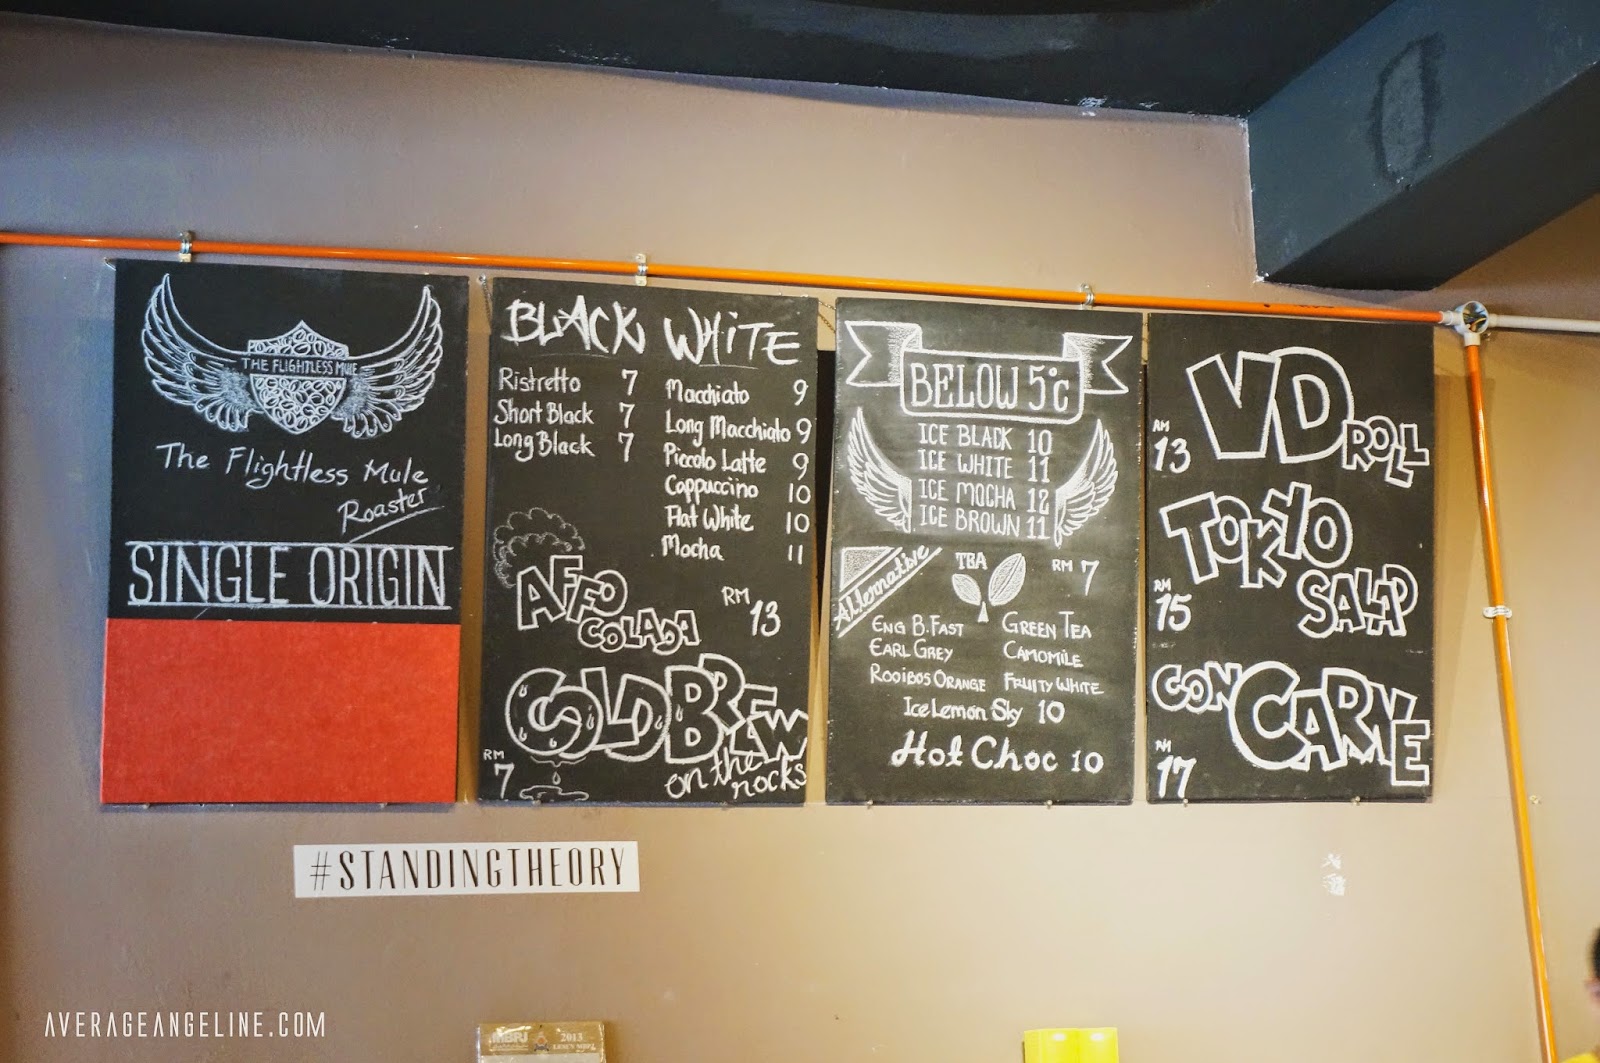 THE FLIGHTLESS MULE
The Flightless Mule
Roaster
SINGLE ORIGIN
BLACK
Ristretto 7
Short Black 7
Long Black 7
WHITE
Macchiato 9
Long Macchiato 9
Piccolo Latte 9
Cappuccino 10
Flat White 10
Mocha 11
AFFO
COLADA
RM 13
COLD BREW
on the rocks
RM 7
BELOW 5°C
ICE BLACK 10
ICE WHITE 11
ICE MOCHA 12
ICE BROWN 11
Alternative
TBA RM 7
ENG B.FAST
EARL GREY
ROOIBOS ORANGE
GREEN TEA
CAMOMILE
FRUITY WHITE
Ice Lemon Sky 10
Hot Choc 10
RM 13
VD ROLL
TOKYO
SALAD
RM 15
CON CARNE
RM 17
#STANDINGTHEORY
AVERAGEANGELINE.COM
2013